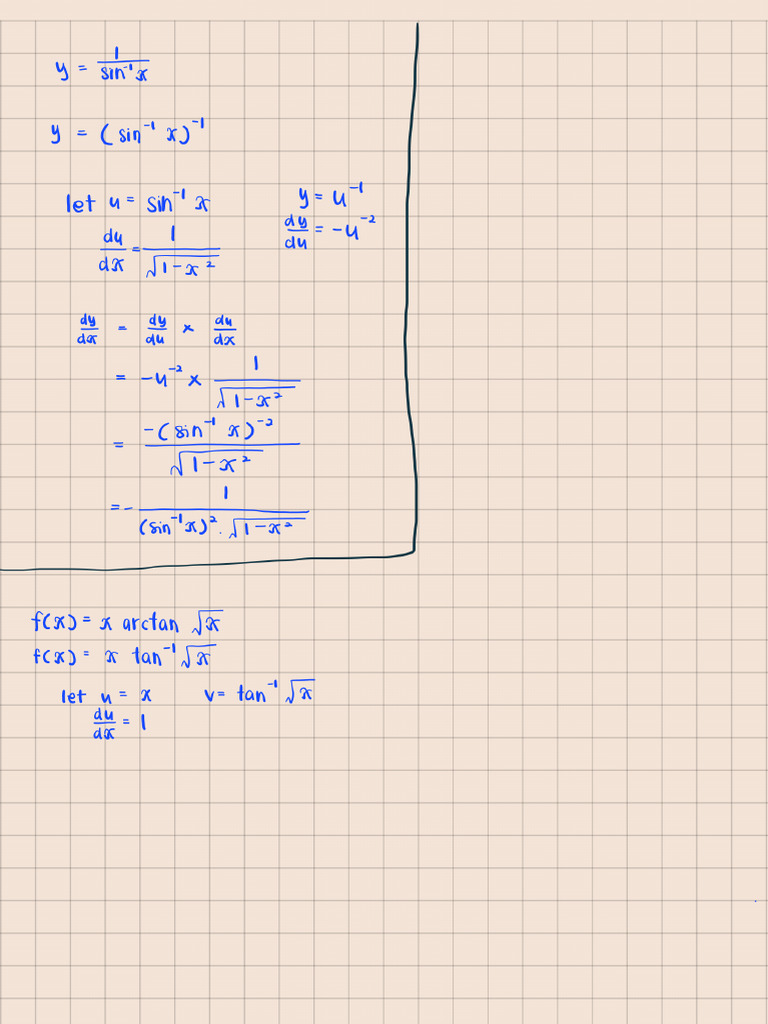 y = 1/(sin⁻¹x)
y = (sin⁻¹ x)⁻¹
let u = sin⁻¹ x    y = u⁻¹
du/dx = 1/√(1-x²)    dy/du = -u⁻²
dy/dx = dy/du × du/dx
= -u⁻² × 1/√(1-x²)
= -(sin⁻¹ x)⁻²/√(1-x²)
= - 1/((sin⁻¹x)².√(1-x²))
f(x) = x arctan √x
f(x) = x tan⁻¹ √x
let u = x    v = tan⁻¹ √x
du/dx = 1